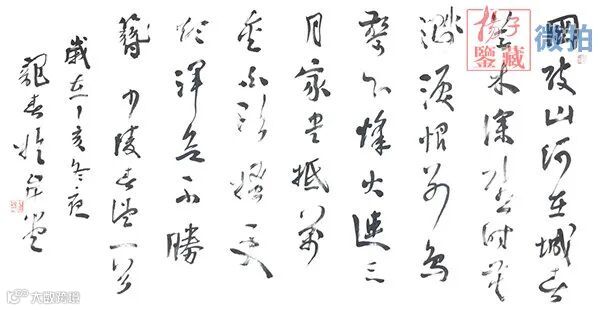 國破山河在城春
草木深感時花
濺淚恨別鳥
驚心烽火連三
月家書抵萬
金白頭搔更
短渾欲不勝
簪少陵春望一首
歲在丁亥冬夜
龍春
鑒藏
微拍
大欧跨境